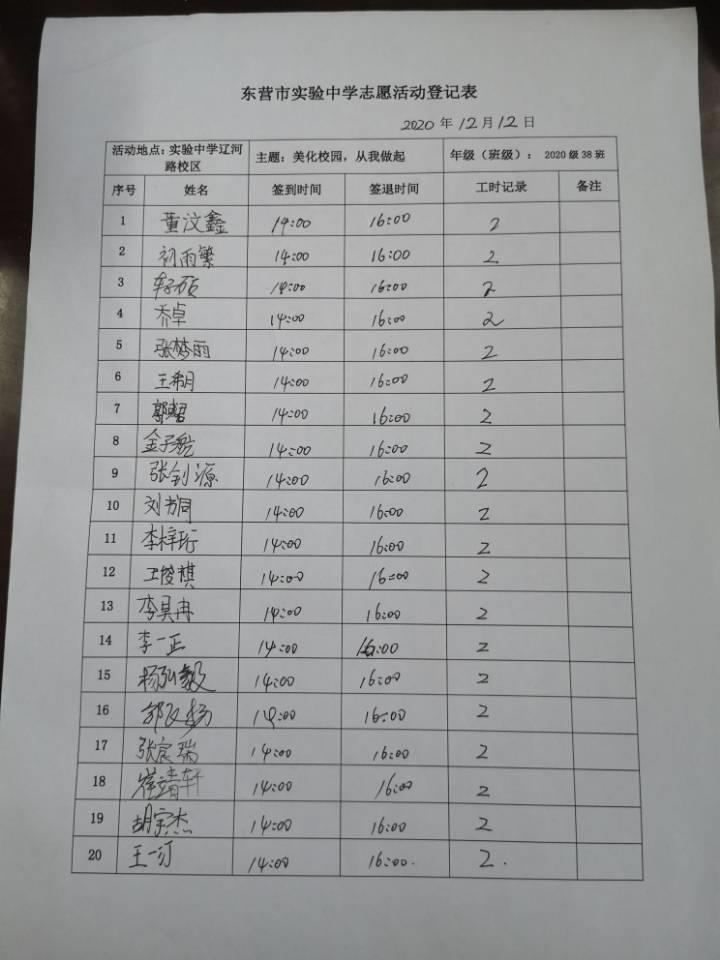 东营市实验中学志愿活动登记表
2020 年 12 月 12 日
活动地点：实验中学辽河路校区 主题：美化校园，从我做起 年级（班级）： 2020 级 38 班
序号 姓名 签到时间 签退时间 工时记录 备注
1 董汶鑫 14:00 16:00 2
2 初雨繁 14:00 16:00 2
3 14:00 16:00 2
4 乔卓 14:00 16:00 2
5 张梦雨 14:00 16:00 2
6 王玥 14:00 16:00 2
7 14:00 16:00 2
8 金子 14:00 16:00 2
9 张钊源 14:00 16:00 2
10 刘书同 14:00 16:00 2
11 李梓珩 14:00 16:00 2
12 王俊祺 14:00 16:00 2
13 李昊冉 14:00 16:00 2
14 李一正 14:00 16:00 2
15 杨弘毅 14:00 16:00 2
16 14:00 16:00 2
17 张宸瑞 14:00 16:00 2
18 崔靖轩 14:00 16:00 2
19 胡宗杰 14:00 16:00 2
20 王一汀 14:00 16:00. 2.